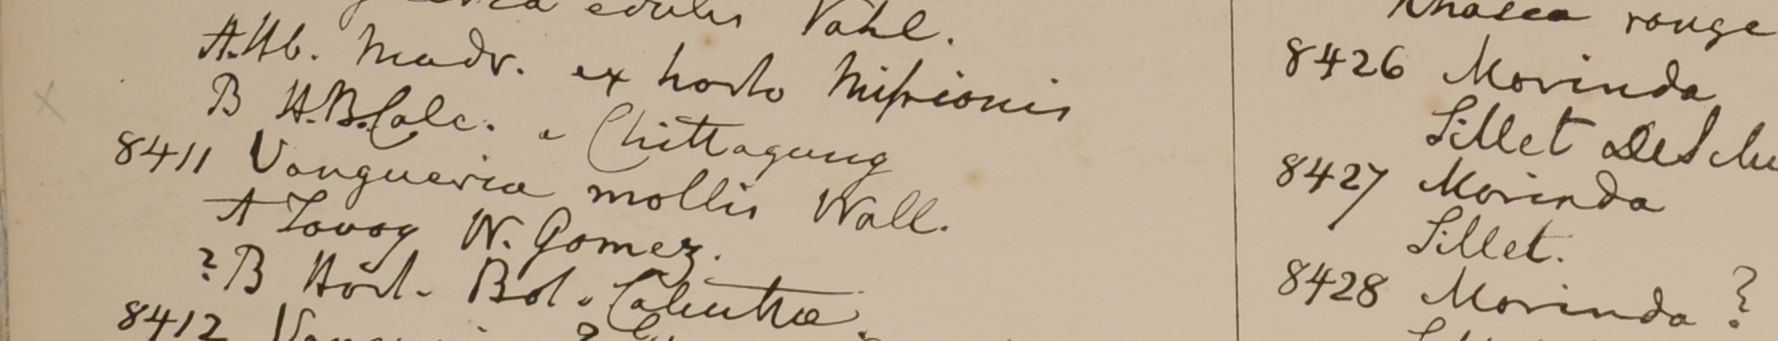 edulis Vahl.
A. Hb. Madr. ex horto Missionis
B H.B. Calc. e Chittagung
8411 Vangueria mollis Wall.
A Tavoy W. Gomez.
? B Hort. Bot. Calcutta.
8412
rouge
8426 Morinda
Sillet
8427 Morinda
Sillet.
8428 Morinda ?